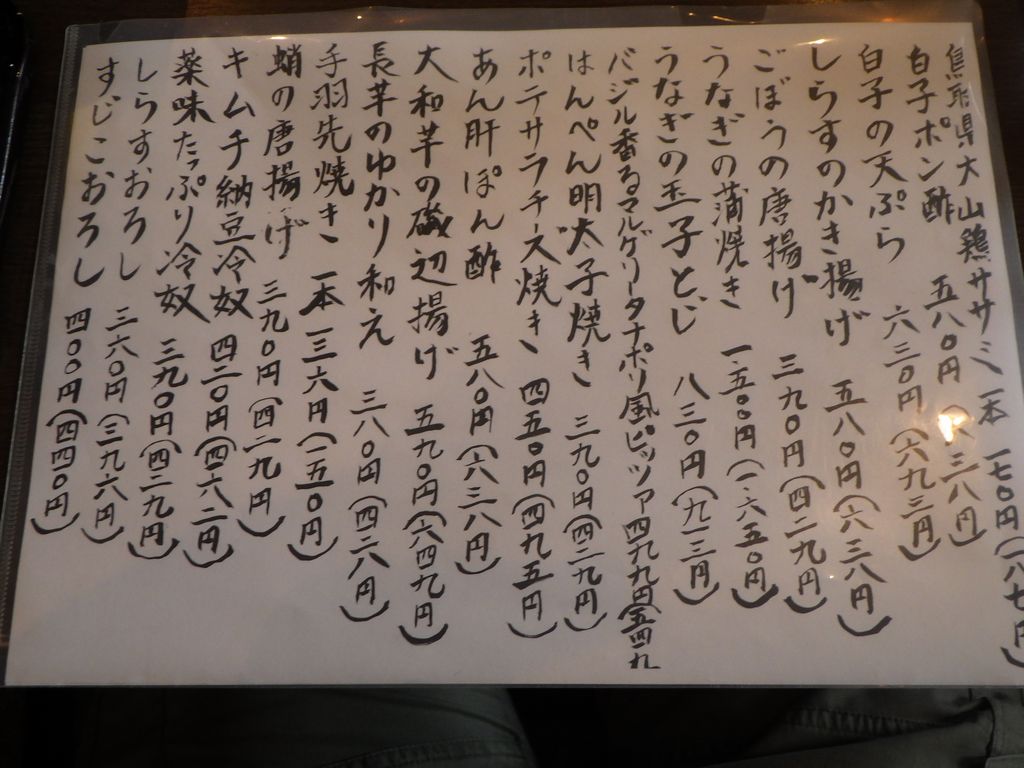 鳥取県大山鶏ササミ 一本 一七〇円(一八七円)
白子ポン酢 五八〇円(六三八円)
白子の天ぷら 六三〇円(六九三円)
しらすのかき揚げ 五八〇円(六三八円)
ごぼうの唐揚げ 三九〇円(四二九円)
うなぎの蒲焼き 一.五〇〇円(一.六五〇円)
うなぎの玉子とじ 八三〇円(九一三円)
バジル香るマルゲリータナポリ風ピッツァ 四九九円(五四九
はんぺん明太子焼き 三九〇円(四二九円)
ポテサラチーズ焼き 四五〇円(四九五円)
あん肝ぽん酢 五八〇円(六三八円)
大和芋の磯辺揚げ 五九〇円(六四九円)
長芋のゆかり和え 三八〇円(四一八円)
手羽先焼き 一本 一三六円(一五〇円)
蛸の唐揚げ 三九〇円(四二九円)
キムチ納豆冷奴 四二〇円(四六二円)
薬味たっぷり冷奴 三九〇円(四二九円)
しらすおろし 三六〇円(三九六円)
すじこおろし 四〇〇円(四四〇円)